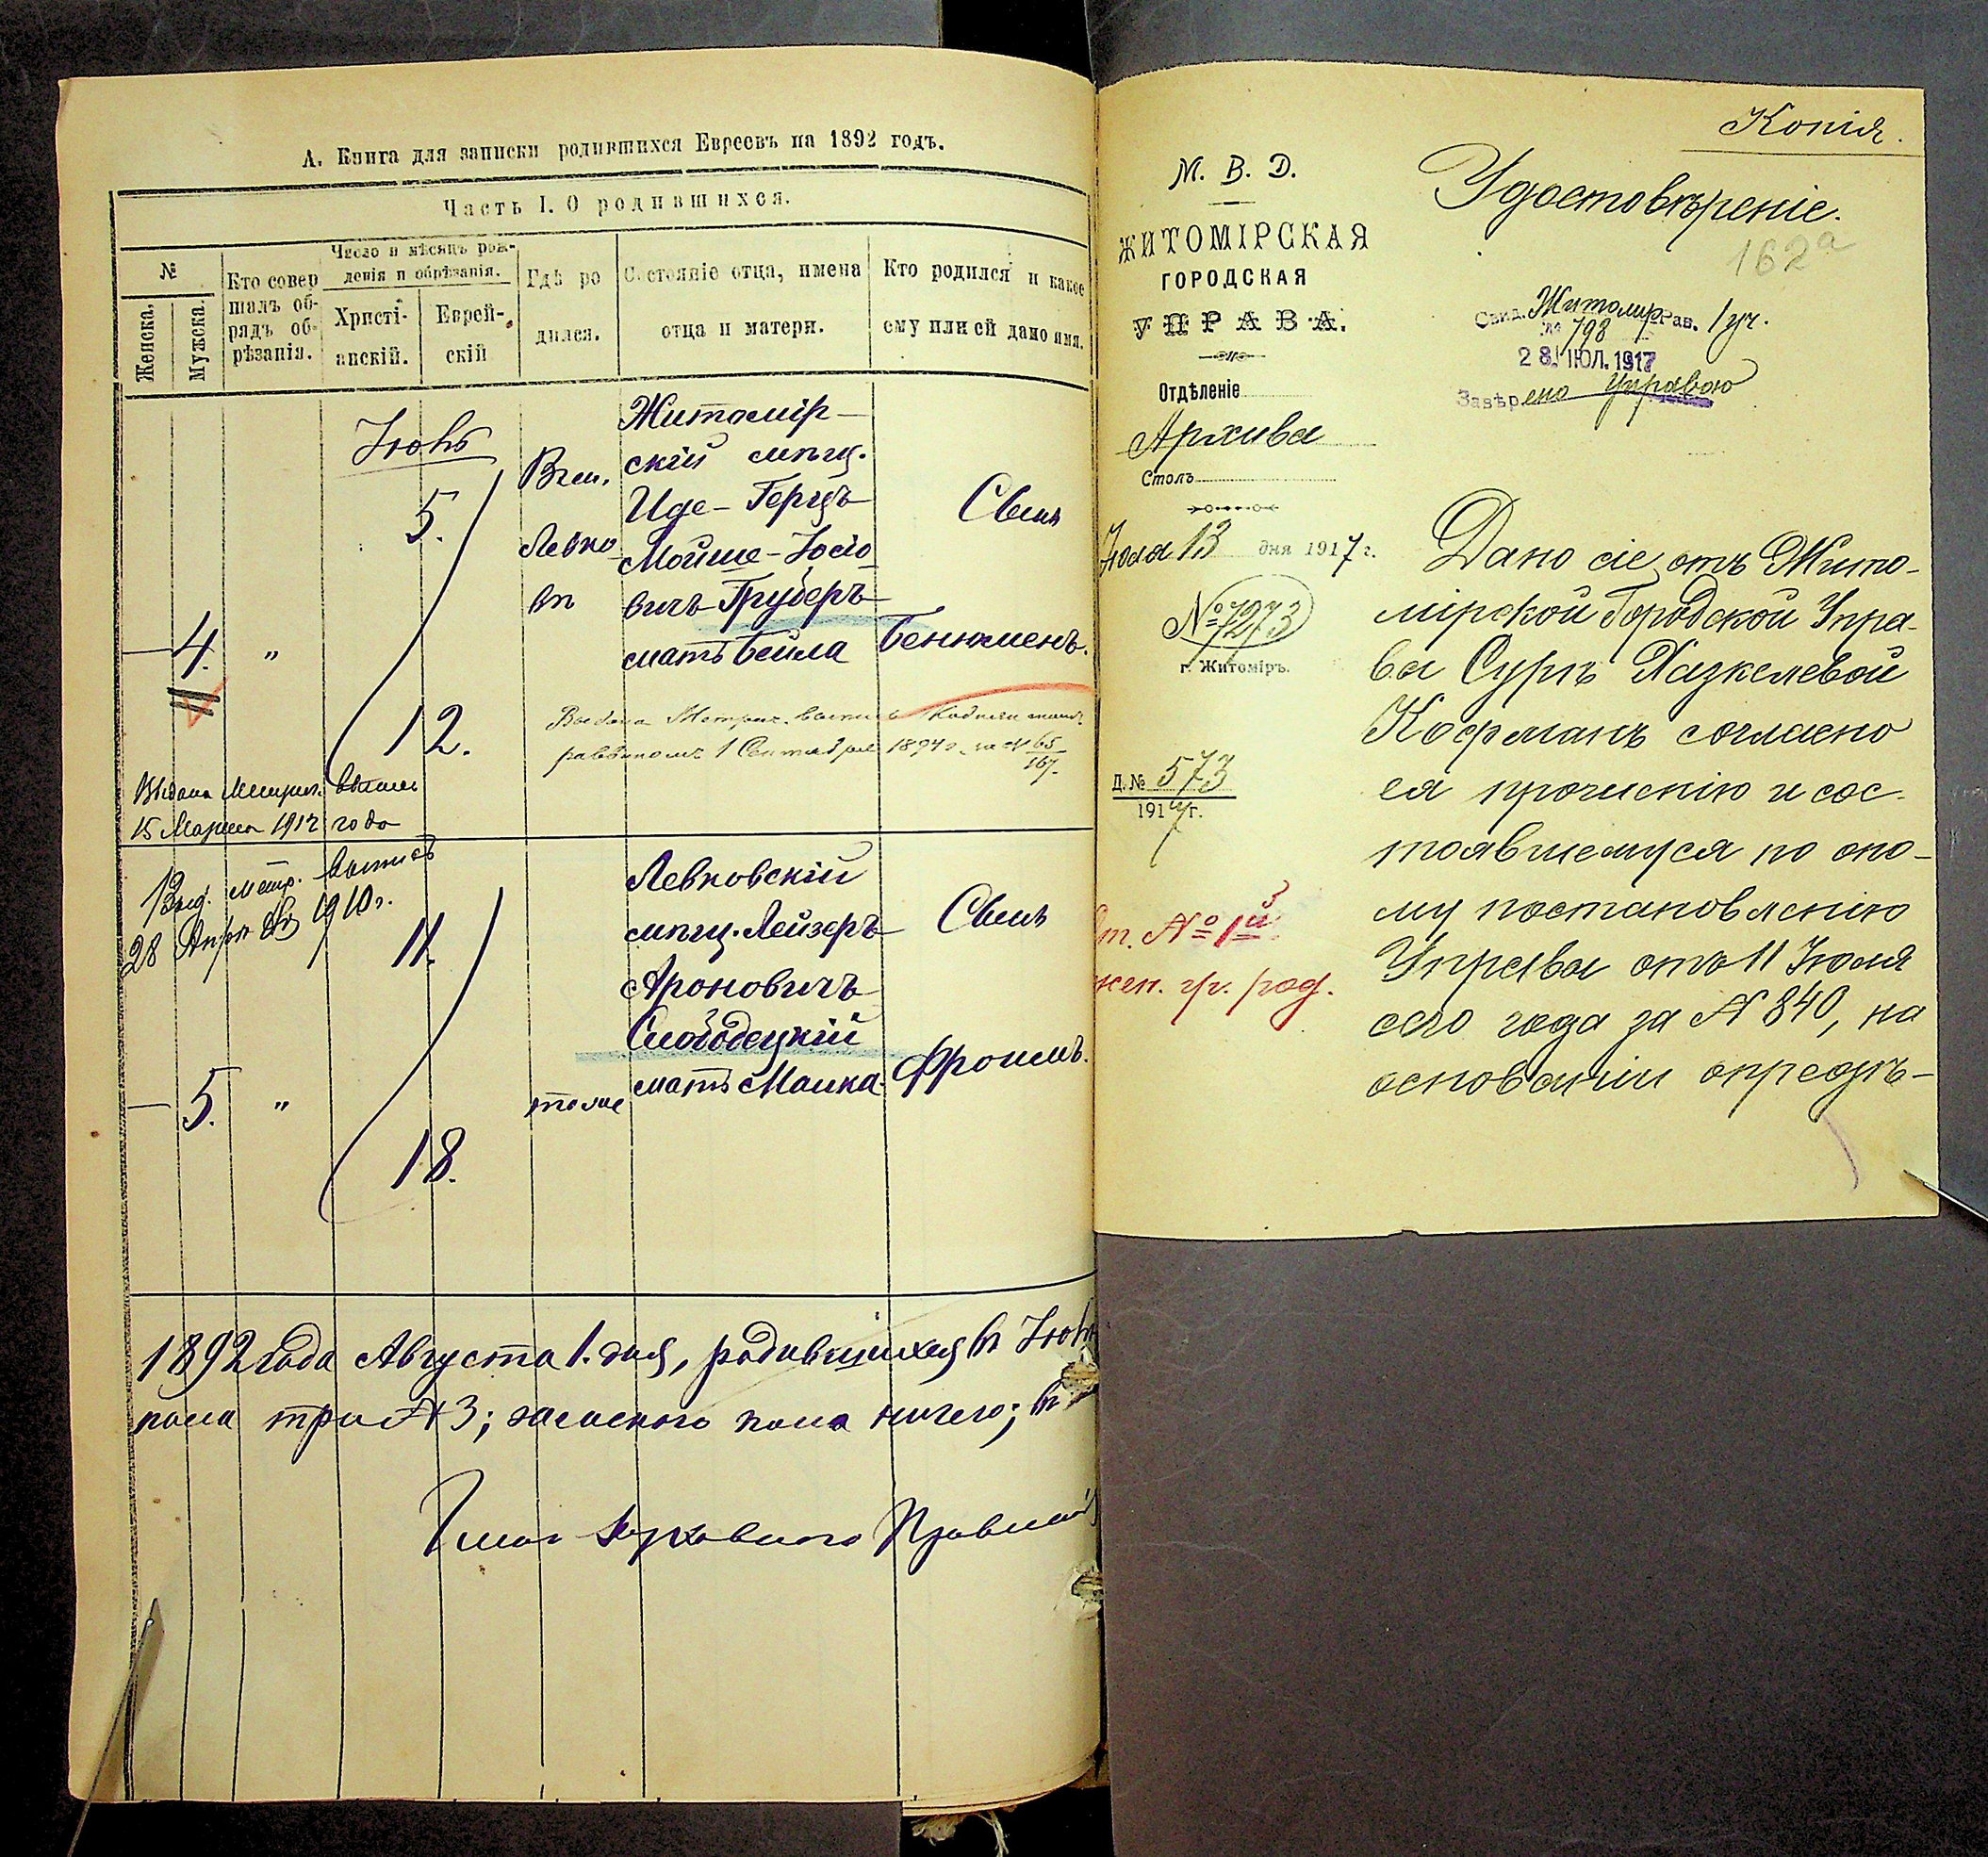 А. Книга для записки родившихся Евреевъ на 1892 годъ.
Часть I. О родившихся.
№
Женска.
Мужска.
Кто совер
шалъ об-
рядъ об-
рѣзанія.
Число и мѣсяцъ рож-
денія и обрѣзанія.
Христі-
анскій.
Еврей-
скій
Гдѣ ро
дился.
Состояніе отца, имена
отца и матери.
Кто родился и какое
ему или ей дано имя.
4.
"
5.
12.
Левко
вѣ
Житомір-
скій мѣщ.
Иде-Герцъ
Мойше-Iосіо
вичъ Груберъ
мать Бейла
Сынъ
Бенюменъ.
Выдана Метрич. выпись
раввиномъ 1 Сентября 1894 г. за № 65
167.
Выдана Метрич. выпись
15 Марта 1912 года
Выд. метр. выпись
28 1910 г.
5.
"
11.
18.
тоже
Левковскій
мѣщ. Лейзеръ
Ароновичъ
Слободецкій
мать Малка
Сынъ
Фроимъ.
1892 года Августа 1. дня, родившихся въ
пола три № 3; женского пола ничего; въ
Копія.
М. В. Д.
ЖИТОМІРСКАЯ
ГОРОДСКАЯ
УПРАВА.
Отдѣленіе
Архива
Столъ
Iюля 13 дня 1917 г.
№ 7273
г. Житоміръ.
Д. № 573
1917 г.
№ 1й
жен. гр. род.
Удостовѣреніе.
162а
Свид. Житомир Рав. 1 уч.
№ 798
28 ІЮЛ. 1917
Завѣрено Управою
Дано сіе отъ Жито-
мірской Городской Упра-
вы Сурѣ Хазкелевой
Кофманъ согласно
ея прошенію и сос-
тоявшемуся по оно-
му постановленію
Управы отъ 11 Iюля
сего года за № 840, на
основаніи опредѣ-